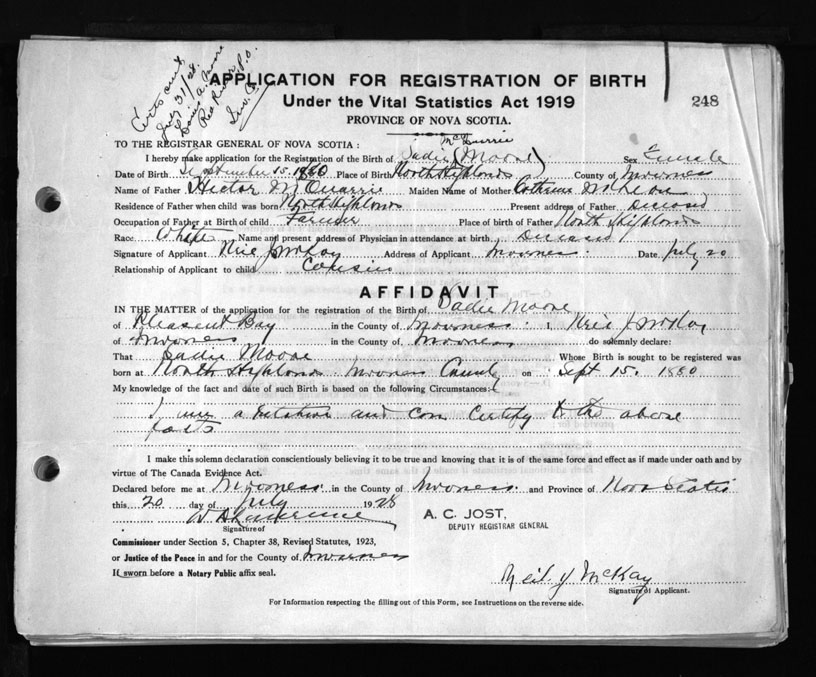 Certs sent
July 31/28
a Moore
Red River P.O.
Inv. Co.
APPLICATION FOR REGISTRATION OF BIRTH
Under the Vital Statistics Act 1919
248
PROVINCE OF NOVA SCOTIA.
TO THE REGISTRAR GENERAL OF NOVA SCOTIA:
I hereby make application for the Registration of the Birth of Sadie (Moore) Sex Female
Date of Birth September 15. 1880 Place of Birth North Highlands County of Inverness
Name of Father Hector McQuarrie Maiden Name of Mother
Residence of Father when child was born North Highlands Present address of Father Deceased
Occupation of Father at Birth of child Farmer Place of birth of Father North Highlands
Race White Name and present address of Physician in attendance at birth Deceased
Signature of Applicant Neil J McKay Address of Applicant Inverness. Date July 20
Relationship of Applicant to child Cousin
AFFIDAVIT
IN THE MATTER of the application for the registration of the Birth of Sadie Moore
of Pleasent Bay in the County of Inverness. I, Neil J McKay
of Inverness in the County of Inverness do solemnly declare:
That Sadie Moore Whose Birth is sought to be registered was
born at North Highlands Inverness County on Sept 15. 1880
My knowledge of the fact and date of such Birth is based on the following Circumstances:
I am a relative and can certify to the above
facts
I make this solemn declaration conscientiously believing it to be true and knowing that it is of the same force and effect as if made under oath and by
virtue of The Canada Evidence Act.
Declared before me at Inverness in the County of Inverness and Province of Nova Scotia
this 20 day of July 1928
A. C. JOST,
DEPUTY REGISTRAR GENERAL
Signature of
Commissioner under Section 5, Chapter 38, Revised Statutes, 1923,
or Justice of the Peace in and for the County of Inverness
If sworn before a Notary Public affix seal.
Neil J McKay
Signature of Applicant.
For Information respecting the filling out of this Form, see Instructions on the reverse side.